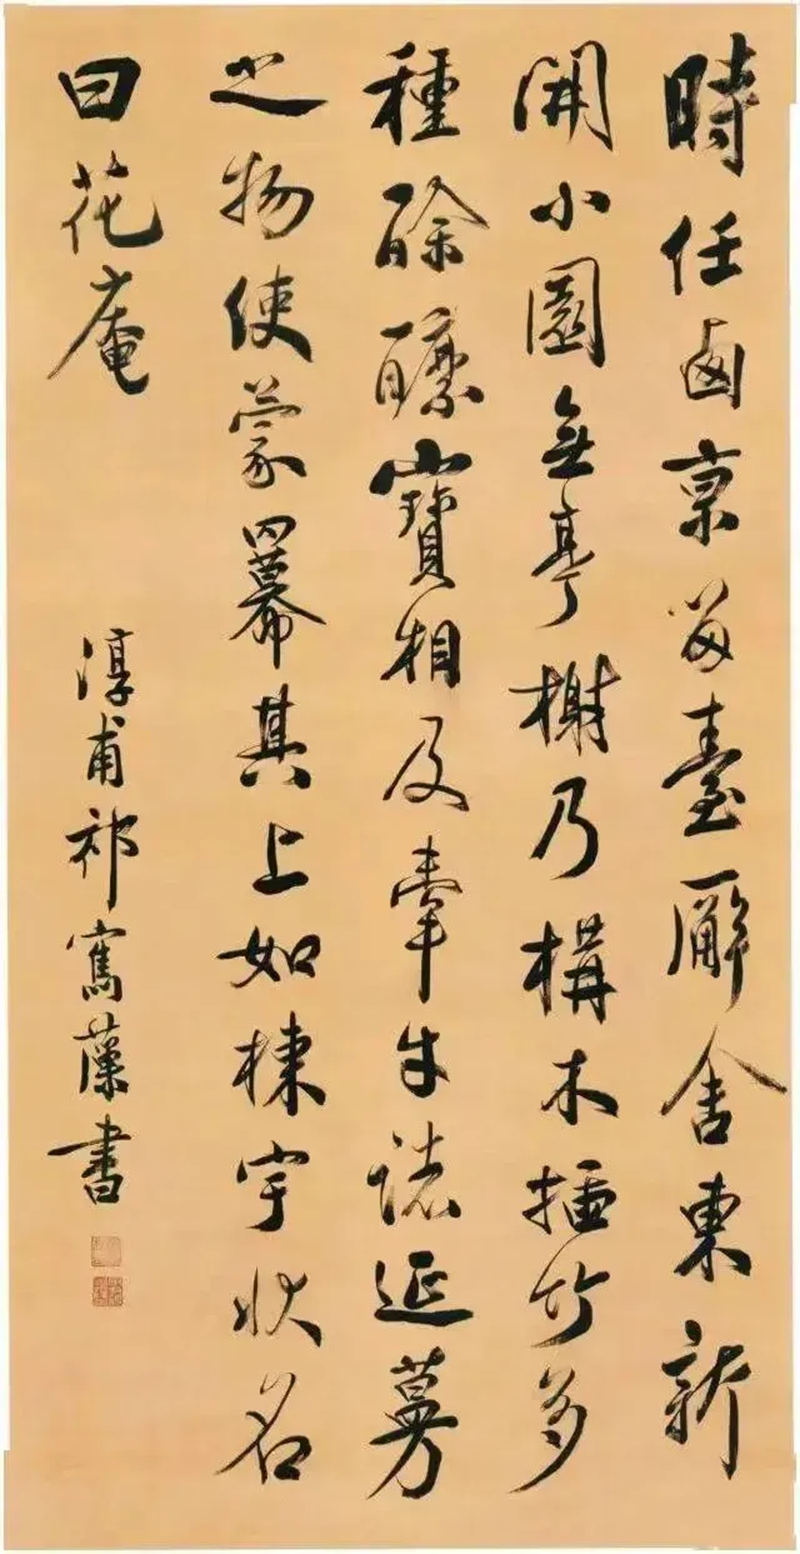 時任西京留臺廨舍東新
開小園無亭榭乃構木插竹多
種酴醾寶相及牽牛諸延蔓
之物使蒙羃其上如棟宇狀名
曰花庵
淳甫祁寯藻書